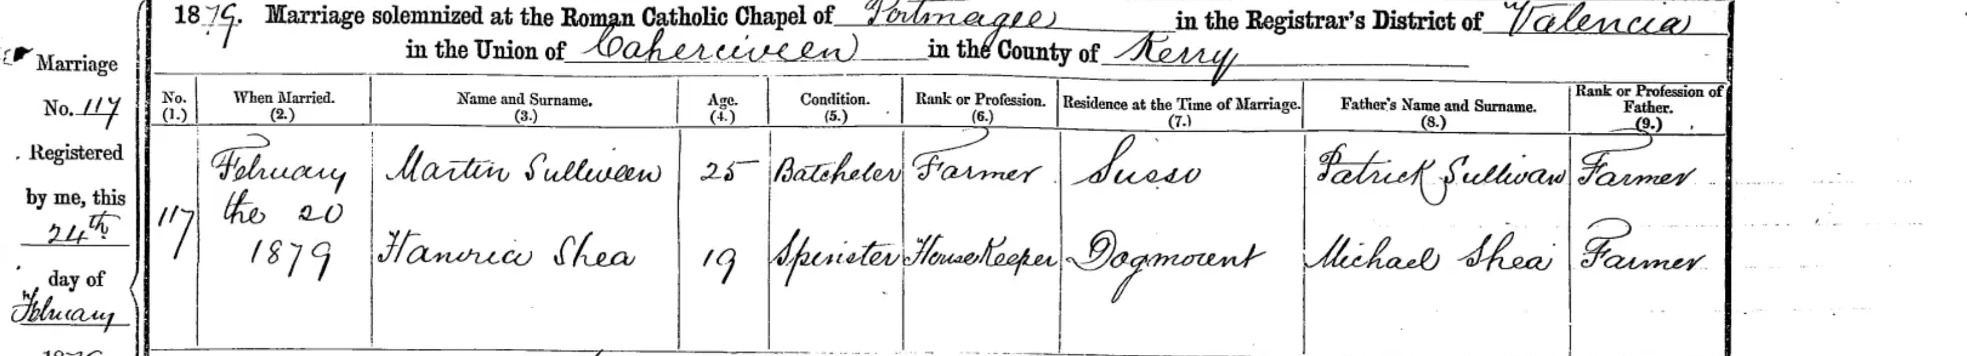 1879. Marriage solemnized at the Roman Catholic Chapel of Portmagee in the Registrar's District of Valencia
in the Union of Caherciveen in the County of Kerry
Marriage
No. 117
Registered
by me, this
24th
day of
February
No. (1.) When Married. (2.) Name and Surname. (3.) Age. (4.) Condition. (5.) Rank or Profession. (6.) Residence at the Time of Marriage. (7.) Father's Name and Surname. (8.) Rank or Profession of Father. (9.)
117 February the 20 1879
Martin Sullivan 25 Batcheler Farmer Patrick Sullivan Farmer
Hanoria Shea 19 Spinister HouseKeeper Dogmount Michael Shea Farmer